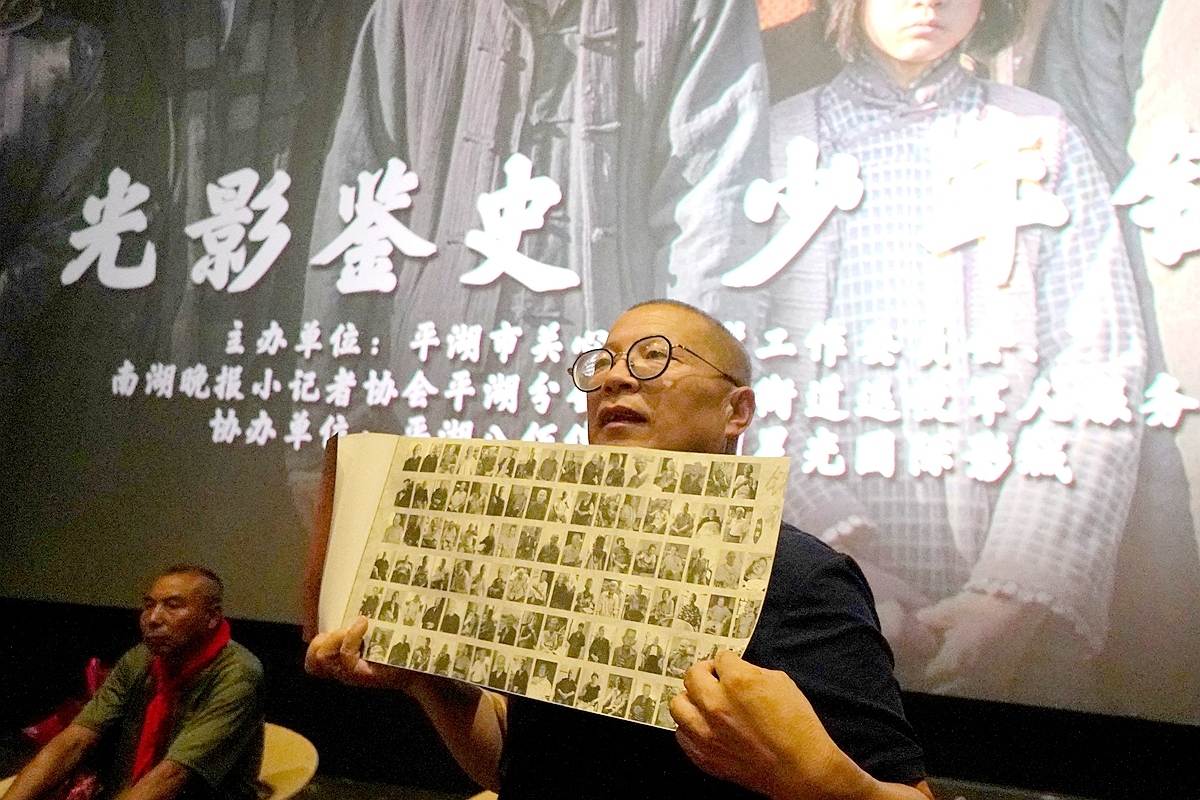 光影鉴史 少年
主办单位：平湖市 工作委员会、
南湖晚报小记者协会平湖分 街道退役军人服务
协办单位：平湖八佰 星光国际影城